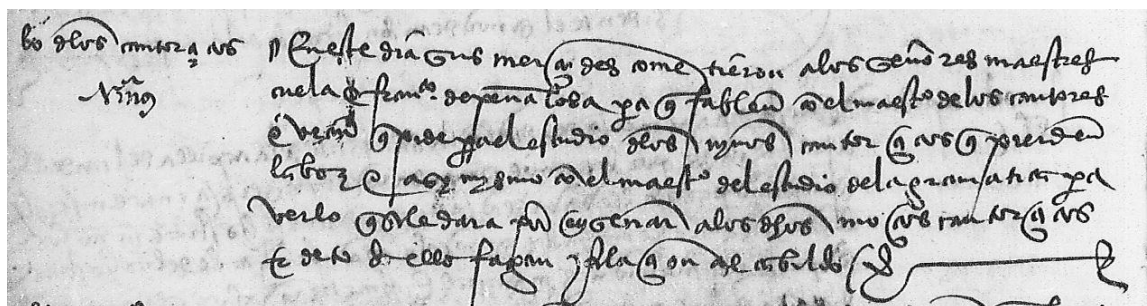 bo dlos cantorcicos
Niños
Eneste dia Sus mercedes cometieron alos Señores maestres
cuela e fran.co de peñalosa pa q fablen con el maestº delos cantores
e vean q pide pa el estudio dlos nyños cantorcicos q prenden
la boz e asy mysmo con el maestº del estudio dela gramatica pa
verlo q se le dara por enseñar alos dhos mocicos cantorcicos
e de todo ello fagan Relacion al cabildo